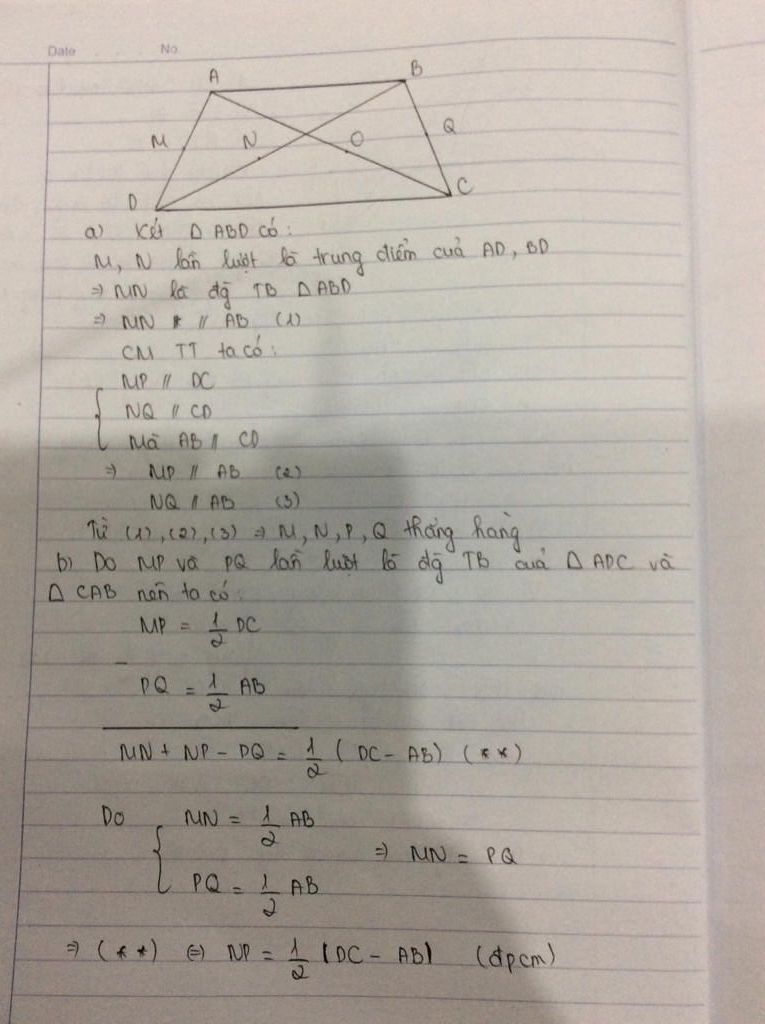 Date No
A B
M N O Q
D C
a) Xét Δ ABD có:
M, N lần lượt là trung điểm cuả AD, BD
⇒ MN là đg TB Δ ABD
⇒ MN // AB (1)
CM TT ta có:
MP // DC
NQ // CD
Mà AB // CD
⇒ MP // AB (2)
NQ // AB (3)
Từ (1), (2), (3) ⇒ M, N, P, Q thẳng hàng
b) Do MP và PQ lần lượt là đg TB cuả Δ ADC và
Δ CAB nên ta có:
MP = 1/2 DC
-
PQ = 1/2 AB
MN + NP - PQ = 1/2 (DC - AB) (**)
Do { MN = 1/2 AB
⇒ MN = PQ
PQ = 1/2 AB
⇒ (**) ⇔ NP = 1/2 (DC - AB) (đpcm)